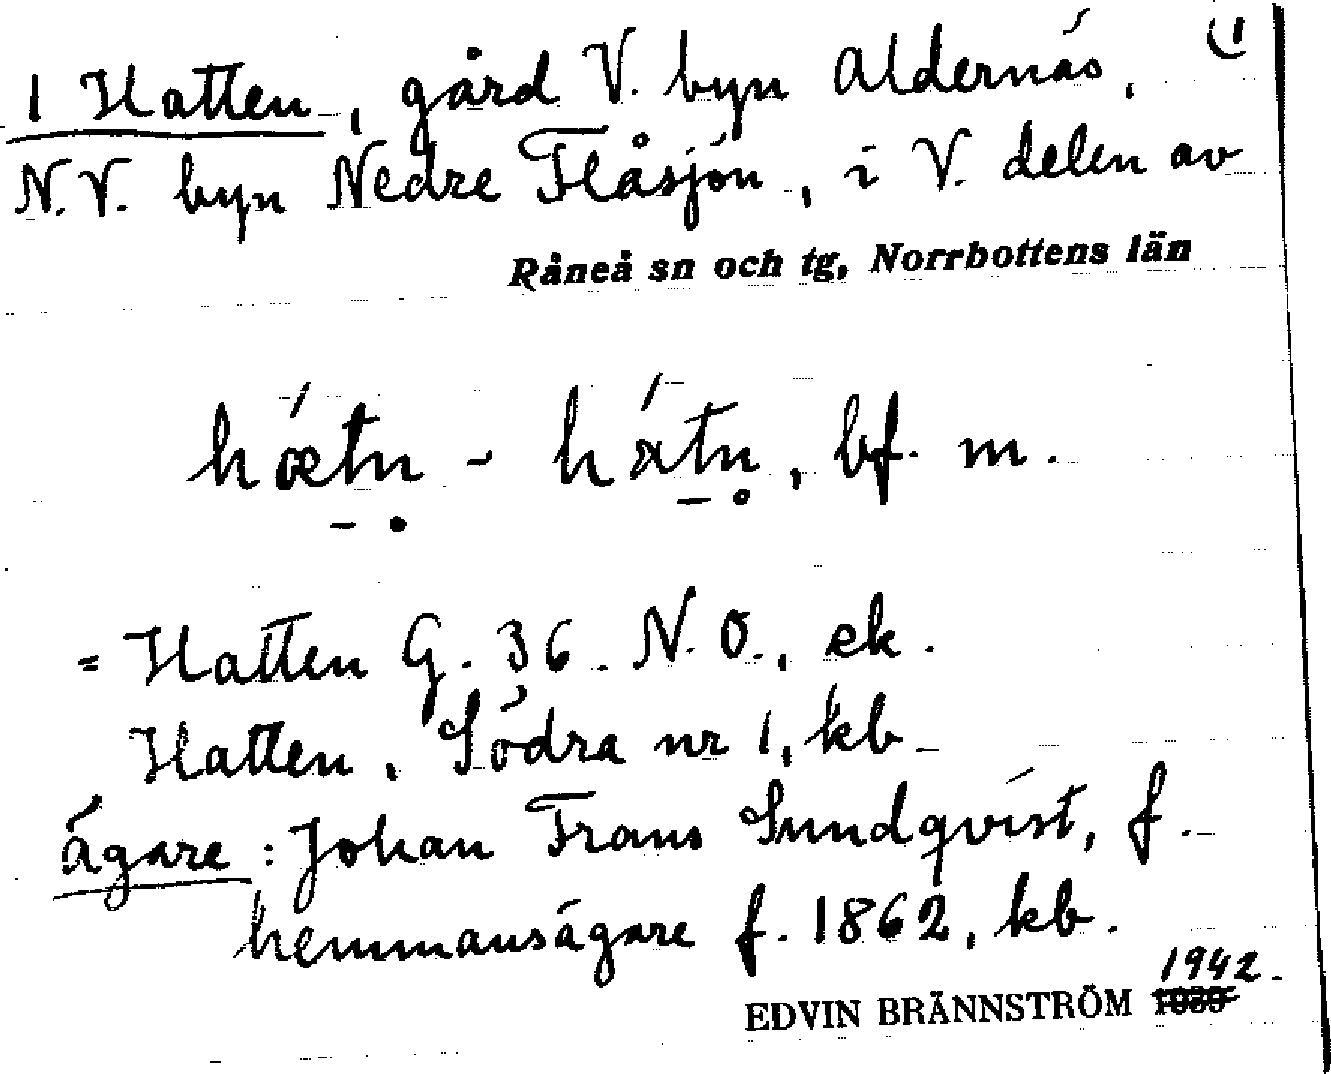 (1
1 Hatten, gård V. byn Aldernäs,
N.V. byn Nedre Flåsjön, i V. delen av
Råneå sn och tg, Norrbottens län
hǽtn - hátn, bf. m.
= Hatten G. 36. N. O., ek.
Hatten, Södra nr 1, kb
ägare: Johan Frans Sundqvist, f.
hemmansägare f. 1862, kb.
1942.
EDVIN BRÄNNSTRÖM